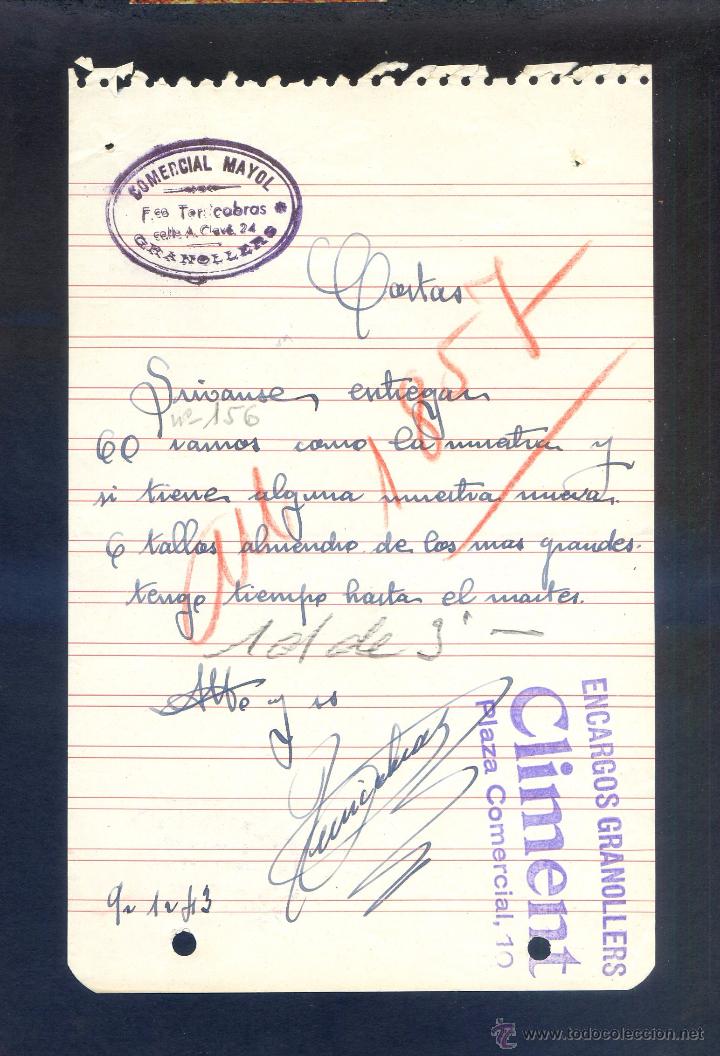 COMERCIAL MAYOL
F.co Torricabras
calle A. Clavé, 24
GRANOLLERS
Costas
Sirvanse entregar
nº 156
60 ramos como la muestra y
si tiene alguna muestra nueva.
6 tallos almendro de los mas grandes.
tengo tiempo hasta el martes.
1857
101 de 3' —
Atte y ss
9 - 1 - 43
ENCARGOS GRANOLLERS
Climent
Plaza Comercial, 10
www.todocoleccion.net